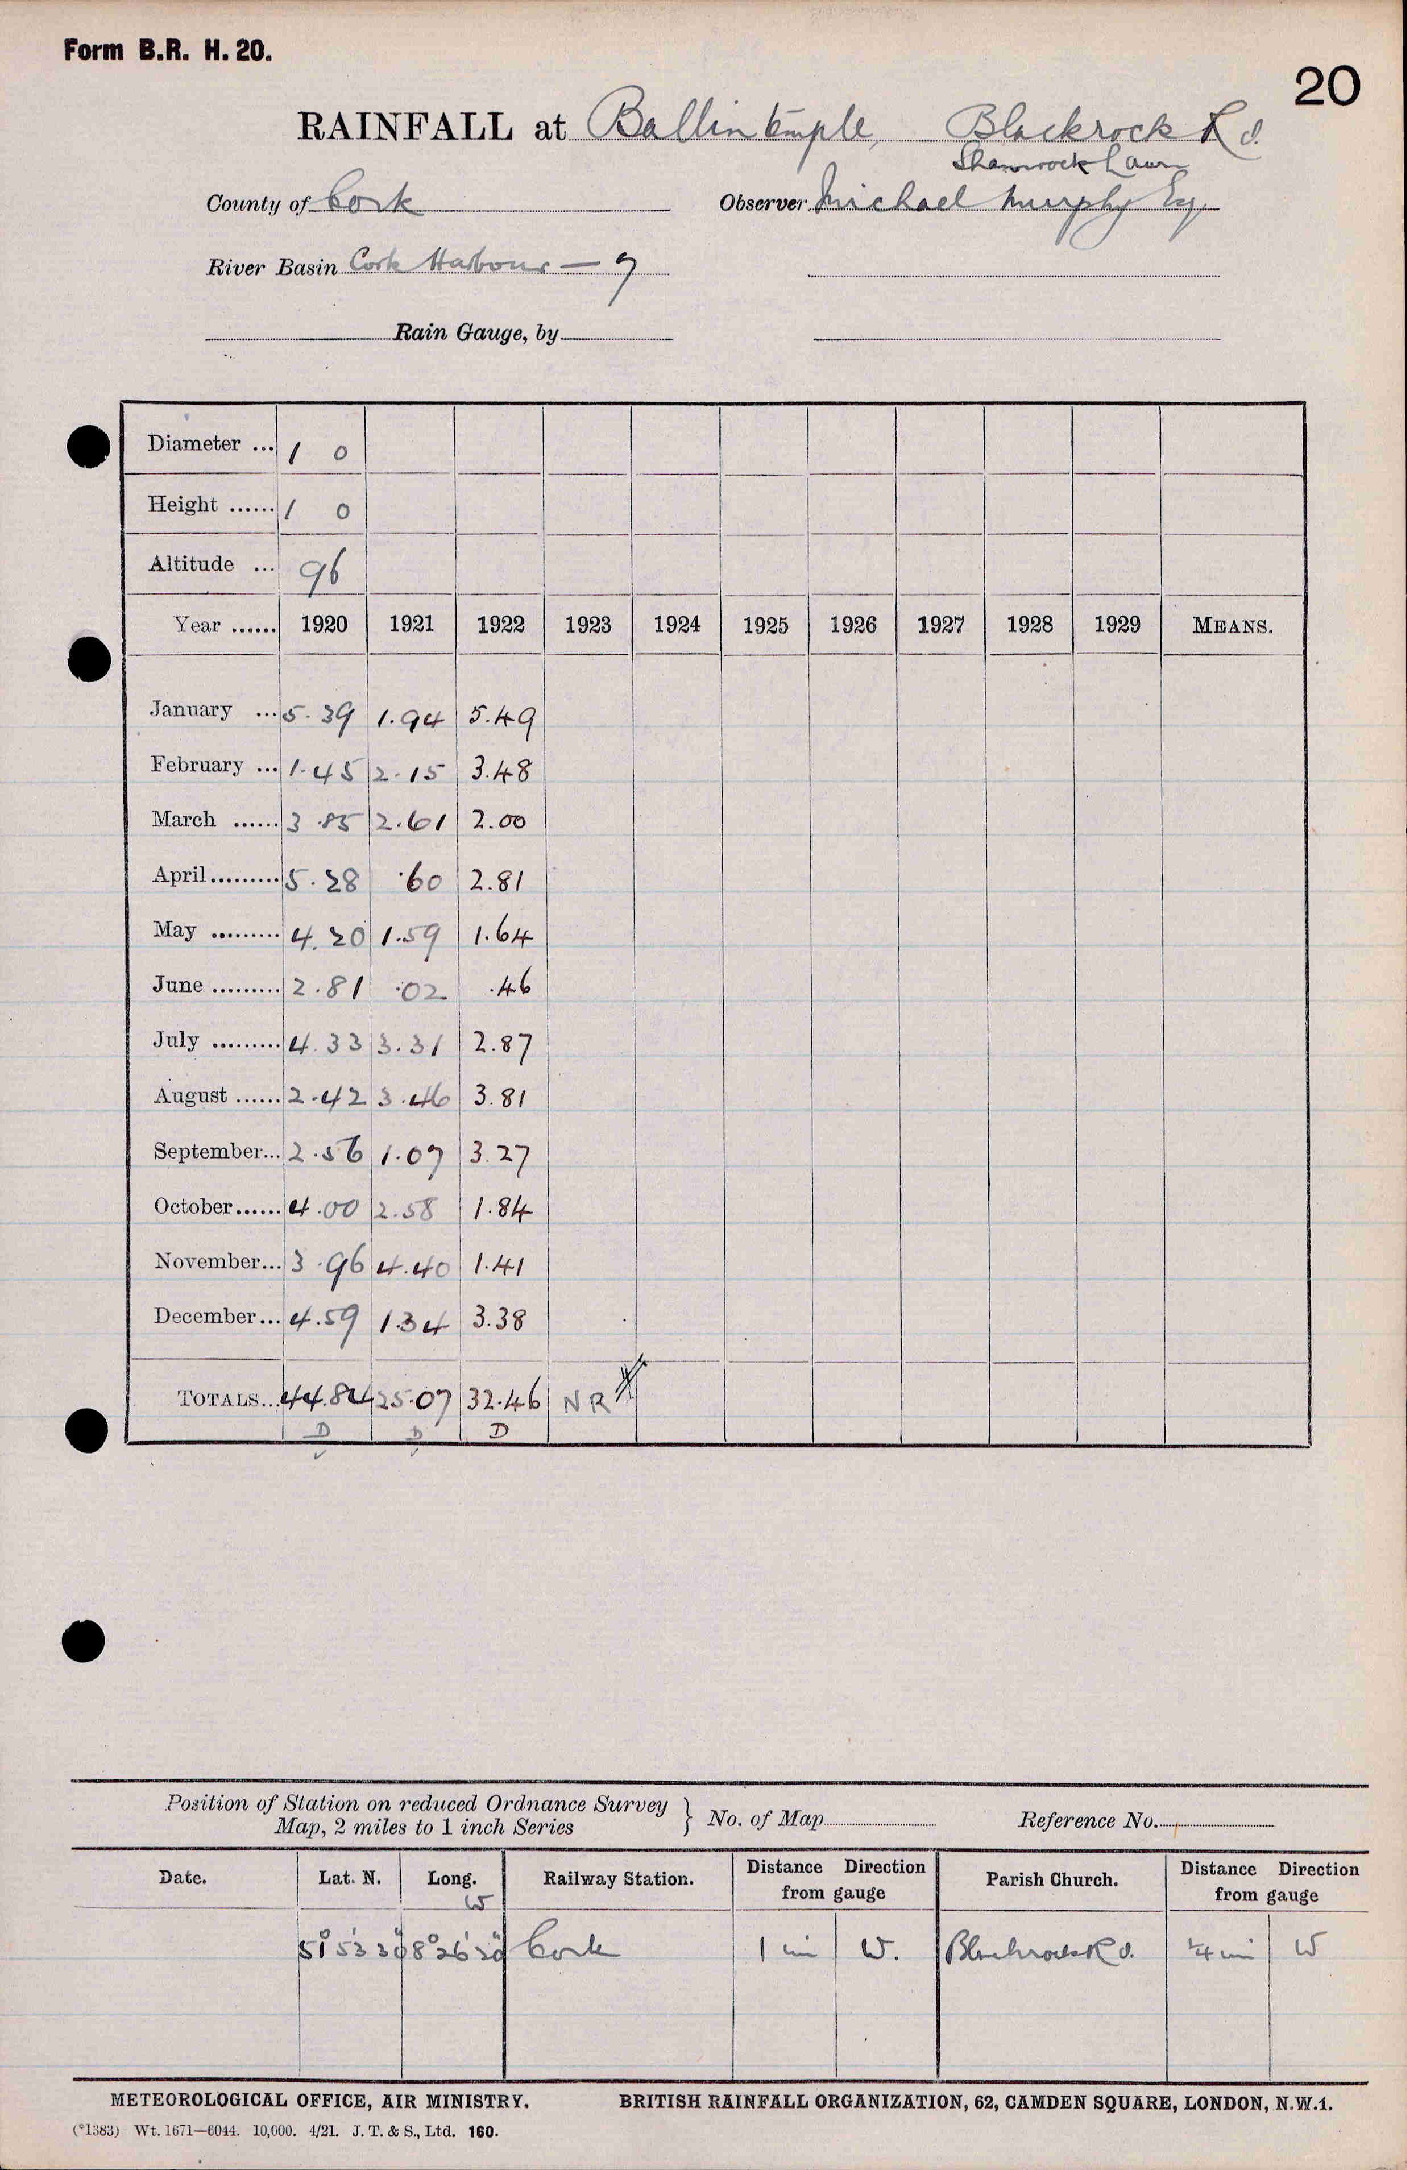 Form B.R. H. 20.
20
RAINFALL at Ballintemple, Blackrock Rd.
Shamrock Lawn
County of Cork Observer Michael Murphy Esq.
River Basin Cork Harbour — 7
Rain Gauge, by
Diameter ... 1 0
Height ...... 1 0
Altitude ... 96
Year ...... 1920 1921 1922 1923 1924 1925 1926 1927 1928 1929 MEANS.
January ... 5.39 1.94 5.49
February ... 1.45 2.15 3.48
March ...... 3.85 2.61 2.00
April......... 5.28 .60 2.81
May ......... 4.20 1.59 1.64
June ......... 2.81 .02 .46
July ......... 4.33 3.31 2.87
August ...... 2.42 3.46 3.81
September... 2.56 1.07 3.27
October...... 4.00 2.58 1.84
November... 3.96 4.40 1.41
December... 4.59 1.34 3.38
TOTALS... 44.84 25.07 32.46 NR
D D D
Position of Station on reduced Ordnance Survey
Map, 2 miles to 1 inch Series } No. of Map Reference No.
Date. Lat. N. Long. W Railway Station. Distance Direction from gauge Parish Church. Distance Direction from gauge
51° 53' 30" 8° 26' 20" Cork 1 mi W. Blackrock Rd. ¼ mi W
METEOROLOGICAL OFFICE, AIR MINISTRY. BRITISH RAINFALL ORGANIZATION, 62, CAMDEN SQUARE, LONDON, N.W.1.
(*1383) Wt. 1671—6044. 10,000. 4/21. J. T. & S., Ltd. 160.